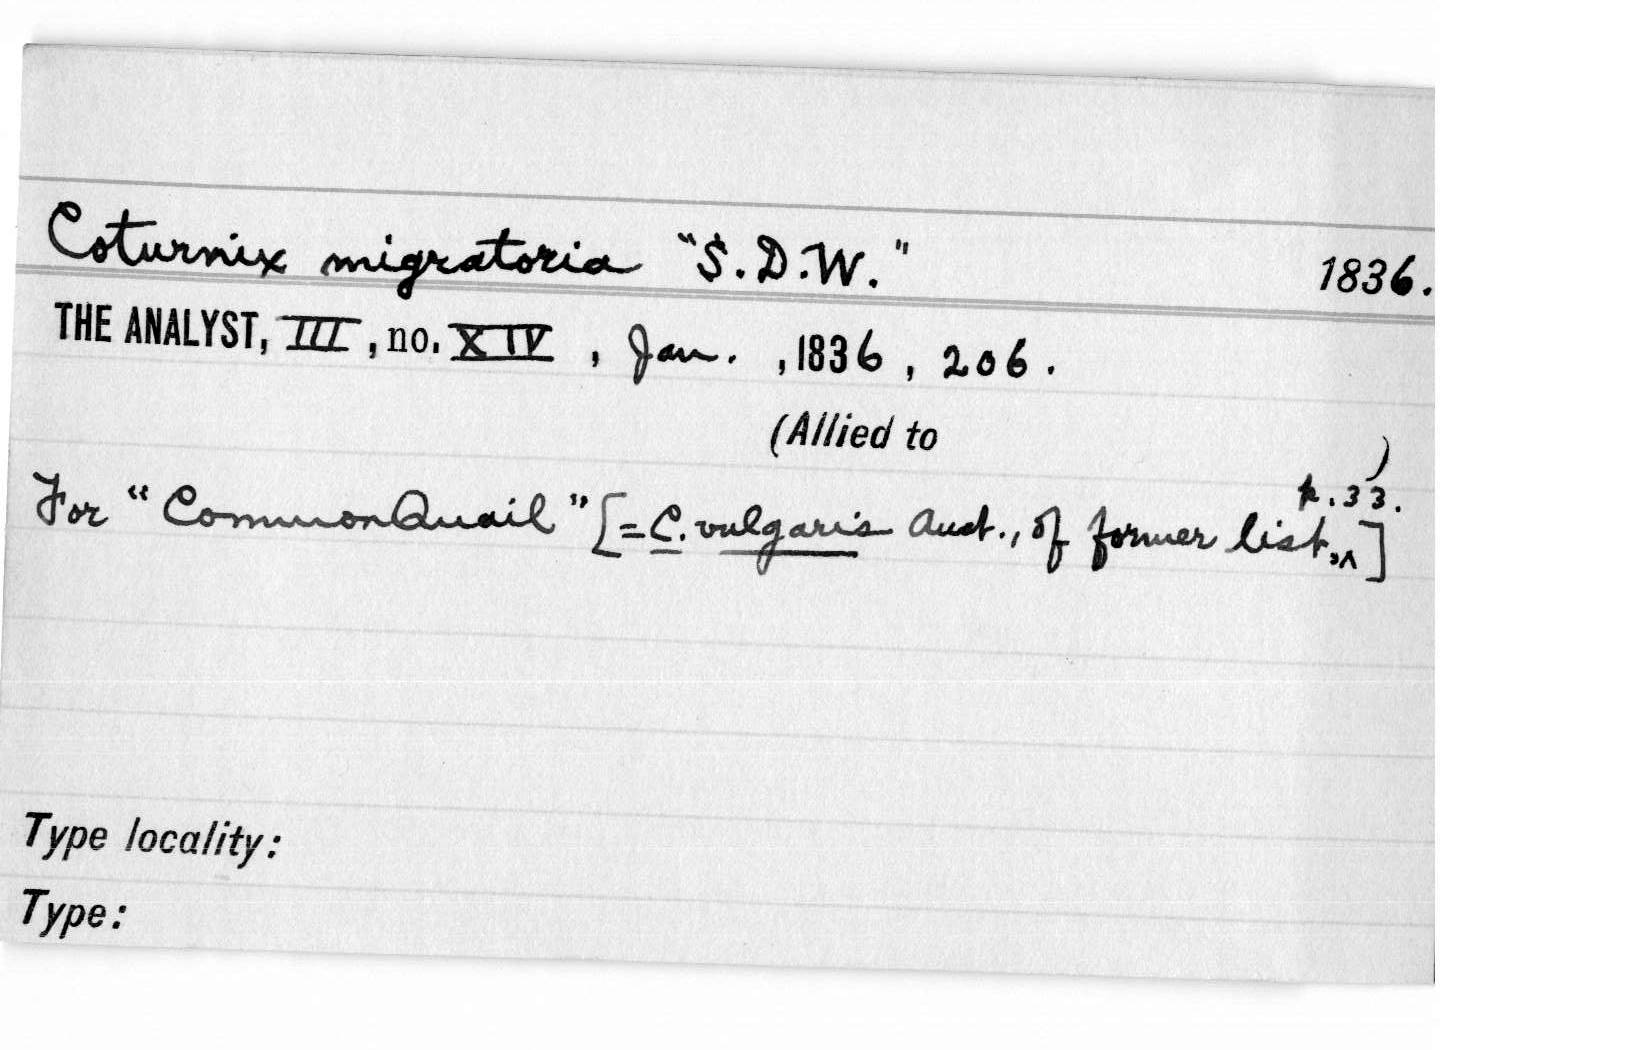 Coturnix migratoria "S.D.W." 1836.
THE ANALYST, III, no. XIV, Jan. ,1836, 206.
(Allied to )
For "Common Quail" [=C. vulgaris Auct., of former list,^ p.33.]
Type locality:
Type: